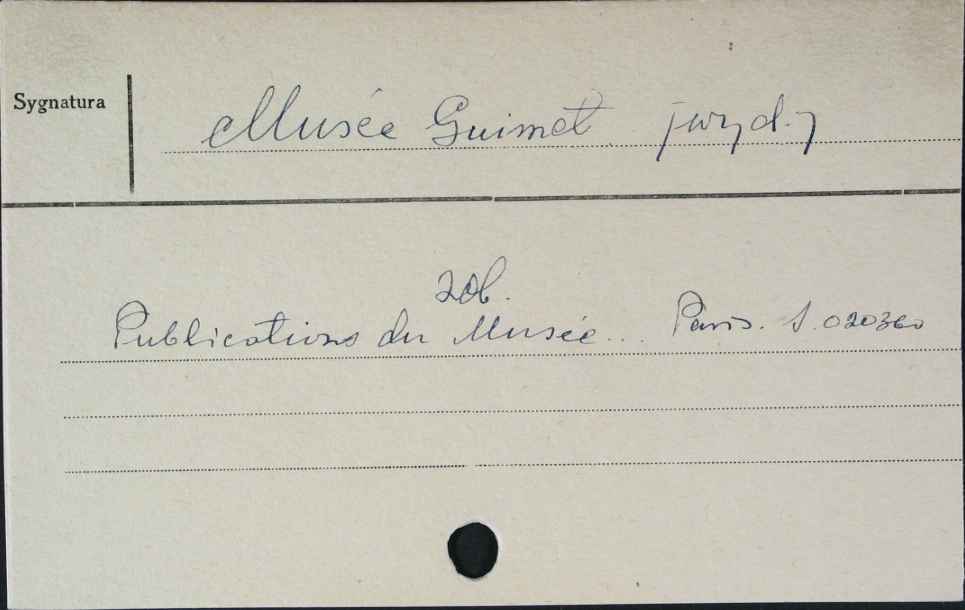 Sygnatura
Musée Guimet [wyd.]
zob.
Publications du Musée... Paris. S. 020360